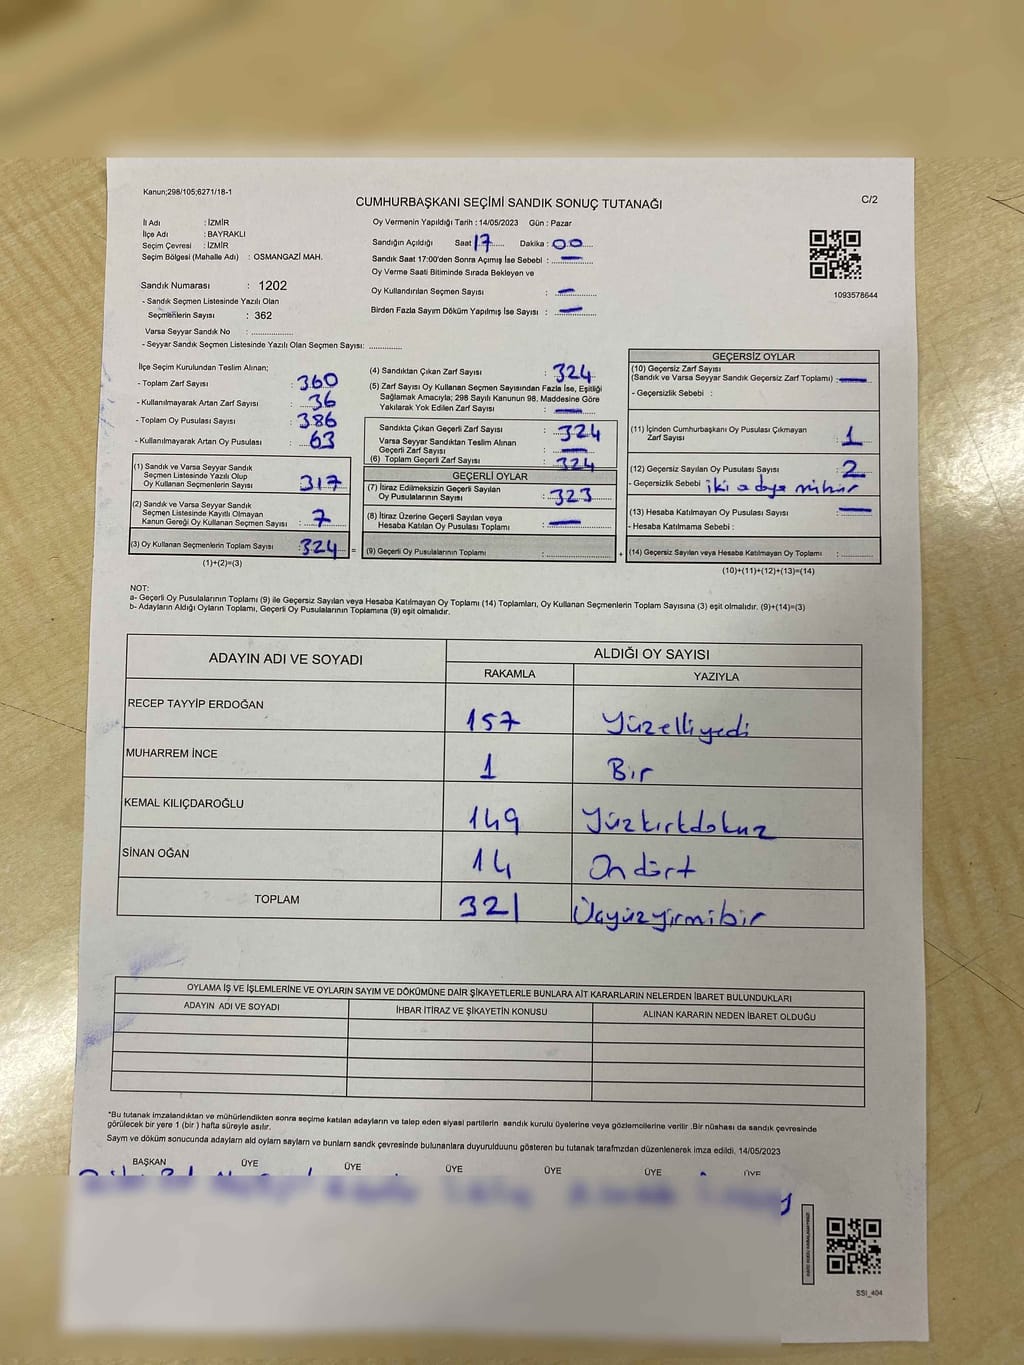 Kanun;298/105;6271/18-1
CUMHURBAŞKANI SEÇİMİ SANDIK SONUÇ TUTANAĞI
C/2
İl Adı : İZMİR
İlçe Adı : BAYRAKLI
Seçim Çevresi : İZMİR
Seçim Bölgesi (Mahalle Adı) : OSMANGAZİ MAH.
Sandık Numarası : 1202
- Sandık Seçmen Listesinde Yazılı Olan
Seçmenlerin Sayısı : 362
Varsa Seyyar Sandık No : ..............
- Seyyar Sandık Seçmen Listesinde Yazılı Olan Seçmen Sayısı: ............
Oy Vermenin Yapıldığı Tarih : 14/05/2023 Gün : Pazar
Sandığın Açıldığı Saat 17 Dakika : 00
Sandık Saat 17:00'den Sonra Açımış İse Sebebi : —
Oy Verme Saati Bitiminde Sırada Bekleyen ve
Oy Kullandırılan Seçmen Sayısı : —
Birden Fazla Sayım Döküm Yapılmış İse Sayısı : —
1093578644
İlçe Seçim Kurulundan Teslim Alınan;
- Toplam Zarf Sayısı : 360
- Kullanılmayarak Artan Zarf Sayısı : 36
- Toplam Oy Pusulası Sayısı : 386
- Kullanılmayarak Artan Oy Pusulası : 63
(1) Sandık ve Varsa Seyyar Sandık
Seçmen Listesinde Yazılı Olup
Oy Kullanan Seçmenlerin Sayısı : 317
(2) Sandık ve Varsa Seyyar Sandık
Seçmen Listesinde Kayıtlı Olmayan
Kanun Gereği Oy Kullanan Seçmen Sayısı : 7
(3) Oy Kullanan Seçmenlerin Toplam Sayısı 324 =
(1)+(2)=(3)
(4) Sandıktan Çıkan Zarf Sayısı : 324
(5) Zarf Sayısı Oy Kullanan Seçmen Sayısından Fazla İse, Eşitliği
Sağlamak Amacıyla; 298 Sayılı Kanunun 98. Maddesine Göre
Yakılarak Yok Edilen Zarf Sayısı : —
Sandıkta Çıkan Geçerli Zarf Sayısı : 324
Varsa Seyyar Sandıktan Teslim Alınan
Geçerli Zarf Sayısı : —
(6) Toplam Geçerli Zarf Sayısı : 324
GEÇERLİ OYLAR
(7) İtiraz Edilmeksizin Geçerli Sayılan
Oy Pusulalarının Sayısı : 323
(8) İtiraz Üzerine Geçerli Sayılan veya
Hesaba Katılan Oy Pusulası Toplamı : —
(9) Geçerli Oy Pusulalarının Toplamı : .............. +
GEÇERSİZ OYLAR
(10) Geçersiz Zarf Sayısı
(Sandık ve Varsa Seyyar Sandık Geçersiz Zarf Toplamı) : —
- Geçersizlik Sebebi :
(11) İçinden Cumhurbaşkanı Oy Pusulası Çıkmayan
Zarf Sayısı : 1
(12) Geçersiz Sayılan Oy Pusulası Sayısı : 2
- Geçersizlik Sebebi iki adaya mühür
(13) Hesaba Katılmayan Oy Pusulası Sayısı : —
- Hesaba Katılmama Sebebi :
(14) Geçersiz Sayılan veya Hesaba Katılmayan Oy Toplamı : ..........
(10)+(11)+(12)+(13)=(14)
NOT:
a- Geçerli Oy Pusulalarının Toplamı (9) ile Geçersiz Sayılan veya Hesaba Katılmayan Oy Toplamı (14) Toplamları, Oy Kullanan Seçmenlerin Toplam Sayısına (3) eşit olmalıdır. (9)+(14)=(3)
b- Adayların Aldığı Oyların Toplamı, Geçerli Oy Pusulalarının Toplamına (9) eşit olmalıdır.
ADAYIN ADI VE SOYADI
ALDIĞI OY SAYISI
RAKAMLA YAZIYLA
RECEP TAYYİP ERDOĞAN 157 Yüzelliyedi
MUHARREM İNCE 1 Bir
KEMAL KILIÇDAROĞLU 149 Yüzkırkdokuz
SİNAN OĞAN 14 On dört
TOPLAM 321 Üçyüzyirmibir
OYLAMA İŞ VE İŞLEMLERİNE VE OYLARIN SAYIM VE DÖKÜMÜNE DAİR ŞİKAYETLERLE BUNLARA AİT KARARLARIN NELERDEN İBARET BULUNDUKLARI
ADAYIN ADI VE SOYADI İHBAR İTİRAZ VE ŞİKAYETİN KONUSU ALINAN KARARIN NEDEN İBARET OLDUĞU
*Bu tutanak imzalandıktan ve mühürlendikten sonra seçime katılan adayların ve talep eden siyasi partilerin sandık kurulu üyelerine veya gözlemcilerine verilir .Bir nüshası da sandık çevresinde
görülecek bir yere 1 (bir ) hafta süreyle asılır.
Sayım ve döküm sonucunda adayların ald oyların sayların ve bunların sandk çevresinde bulunanlara duyurulduunu gösteren bu tutanak tarafmzdan düzenlenerek imza edildi, 14/05/2023
BAŞKAN ÜYE ÜYE ÜYE ÜYE ÜYE ÜYE
SSI_404